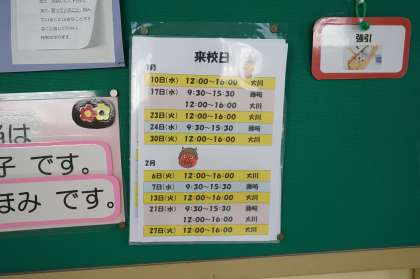 来校日
1月
10日(水) 12:00～16:00 大川
17日(水) 9:30～15:30 藤崎
12:00～16:00 大川
23日(火) 12:00～16:00 大川
24日(水) 9:30～15:30 藤崎
30日(火) 12:00～16:00 大川
2月
6日(火) 12:00～16:00 大川
7日(水) 9:30～15:30 藤崎
13日(火) 12:00～16:00 大川
21日(水) 9:30～15:30 藤崎
12:00～16:00 大川
27日(火) 12:00～16:00 大川
強引
は
子 です。
ほみ です。